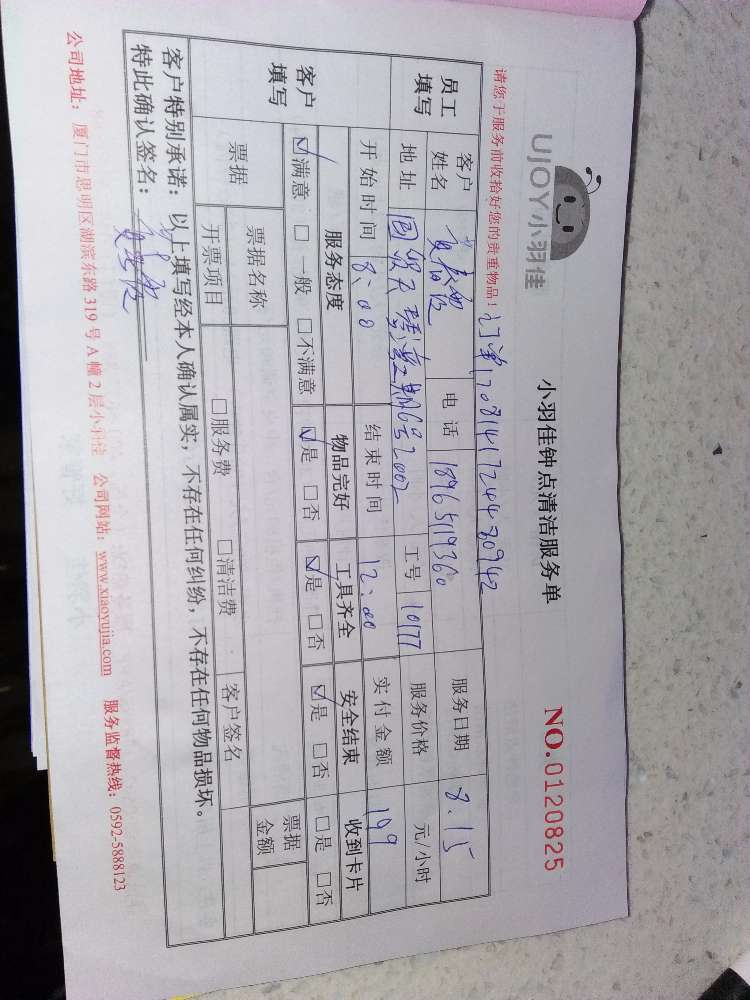 UJOY小羽佳
小羽佳钟点清洁服务单
NO.0120825
请您于服务前收拾好您的贵重物品！ 订单1708141724480942
员工填写 客户姓名 电话 18965119360 服务日期 8.15
地址 工号 10177 服务价格 元/小时
开始时间 8:00 结束时间 12:00 实付金额 199
客户填写 服务态度 物品完好 工具齐全 安全结束 收到卡片
☑满意 □一般 □不满意 ☑是 □否 ☑是 □否 ☑是 □否 □是 □否
票据 票据名称 票据金额
开票项目 □服务费 □清洁费 客户签名
客户特别承诺：以上填写经本人确认属实，不存在任何纠纷，不存在任何物品损坏。
特此确认签名：
公司地址：厦门市思明区湖滨东路319号A幢2层小羽佳 公司网站：www.xiaoyujia.com 服务监督热线：0592-5888123